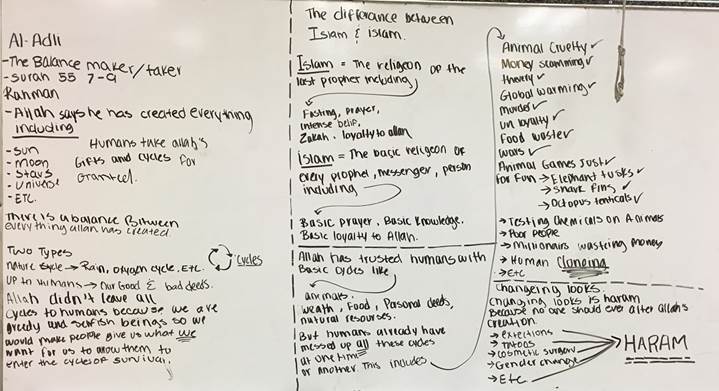 Al-Adli
-The Balance maker/taker
-surah 55 7-9
Rahman
-Allah says he has created everything
including
-sun
-moon
-stars
-universe
-ETC.
Humans take allah's
Gifts and cycles for
Granted.
There is a balance Between
everything allah has created
Two Types
nature cycle → Rain, oxygen cycle, ETC.
up to humans → our Good & bad deeds.
cycles
Allah didn't leave all
cycles to humans because we are
greedy and selfish beings so we
would make people give us what we
want for us to allow them to
enter the cycles of survival.
The differance between
Islam & islam.
Islam = The religeon of the
last prophet including
Fasting, prayer,
intense belif,
Zakah. loyalty to allah
islam = The basic religeon of
every prophet, messenger, person
including
Basic prayer, Basic knowledge.
Basic loyalty to Allah.
Allah has trusted humans with
Basic cycles like
animals.
wealth, Food, Pasonal deeds,
natural resourses.
But humans already have
messed up all these cycles
at one time
or another This includes
Animal Cruelty ✓
Money scamming ✓
theivery ✓
Global warming ✓
murder ✓
un loyalty ✓
Food waster ✓
wars ✓
Animal Games Just ✓
for Fun → Elephant tusks ✓
→ shark fins ✓
→ octopus tenticals ✓
→ Testing chemicals on Animals
→ Poor people
→ Millionairs wastring money
→ Human Cloneing
→ Etc
changeing looks.
changing looks is haram
Because no one should ever alter allah's
creation
→ extections
→ Tattoos
→ cosmetic surgery
→ Gender change
→ Etc
HARAM